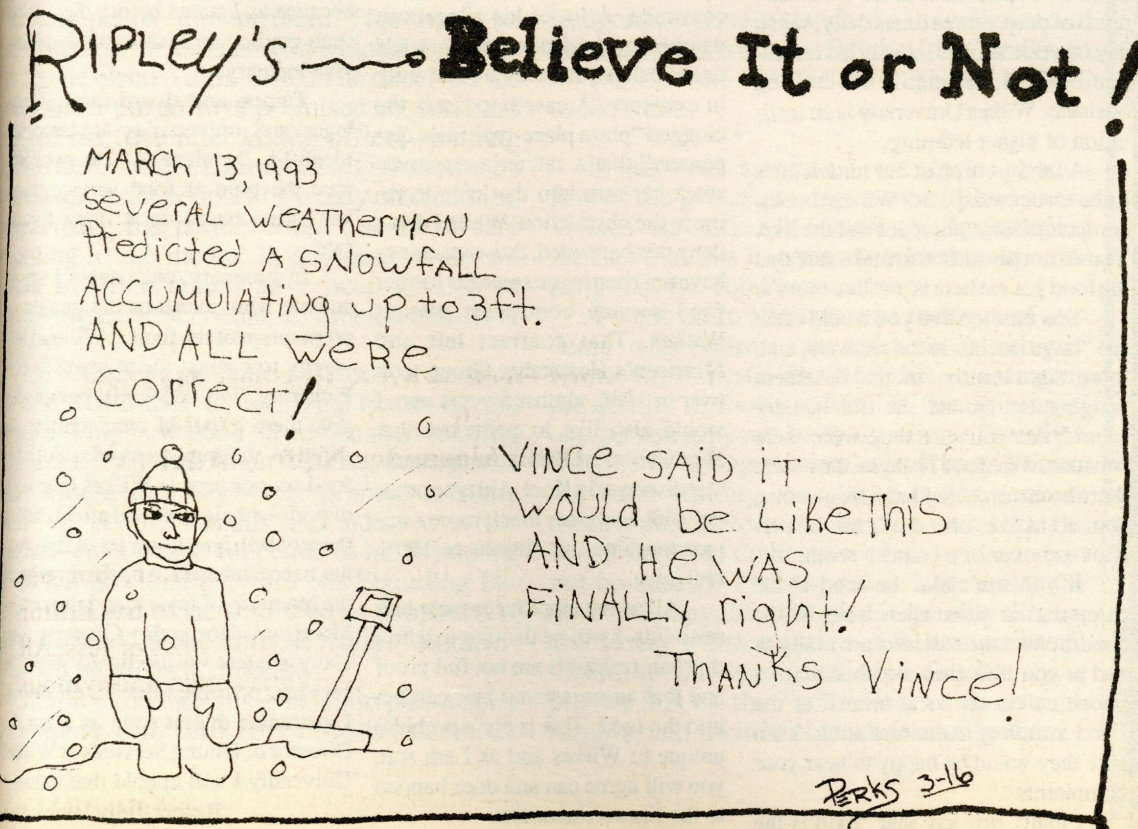 RIPLEY's Believe It or Not!
MARCH 13, 1993
SEVERAL WEATHERMEN
PREDICTED A SNOWFALL
ACCUMULATING UP to 3 ft.
AND ALL WERE
CORRECT!
VINCE SAID IT
WOULD be LIKE THIS
AND HE WAS
FINALLY RIGHT.
THANKS VINCE!
PERKS 3-16